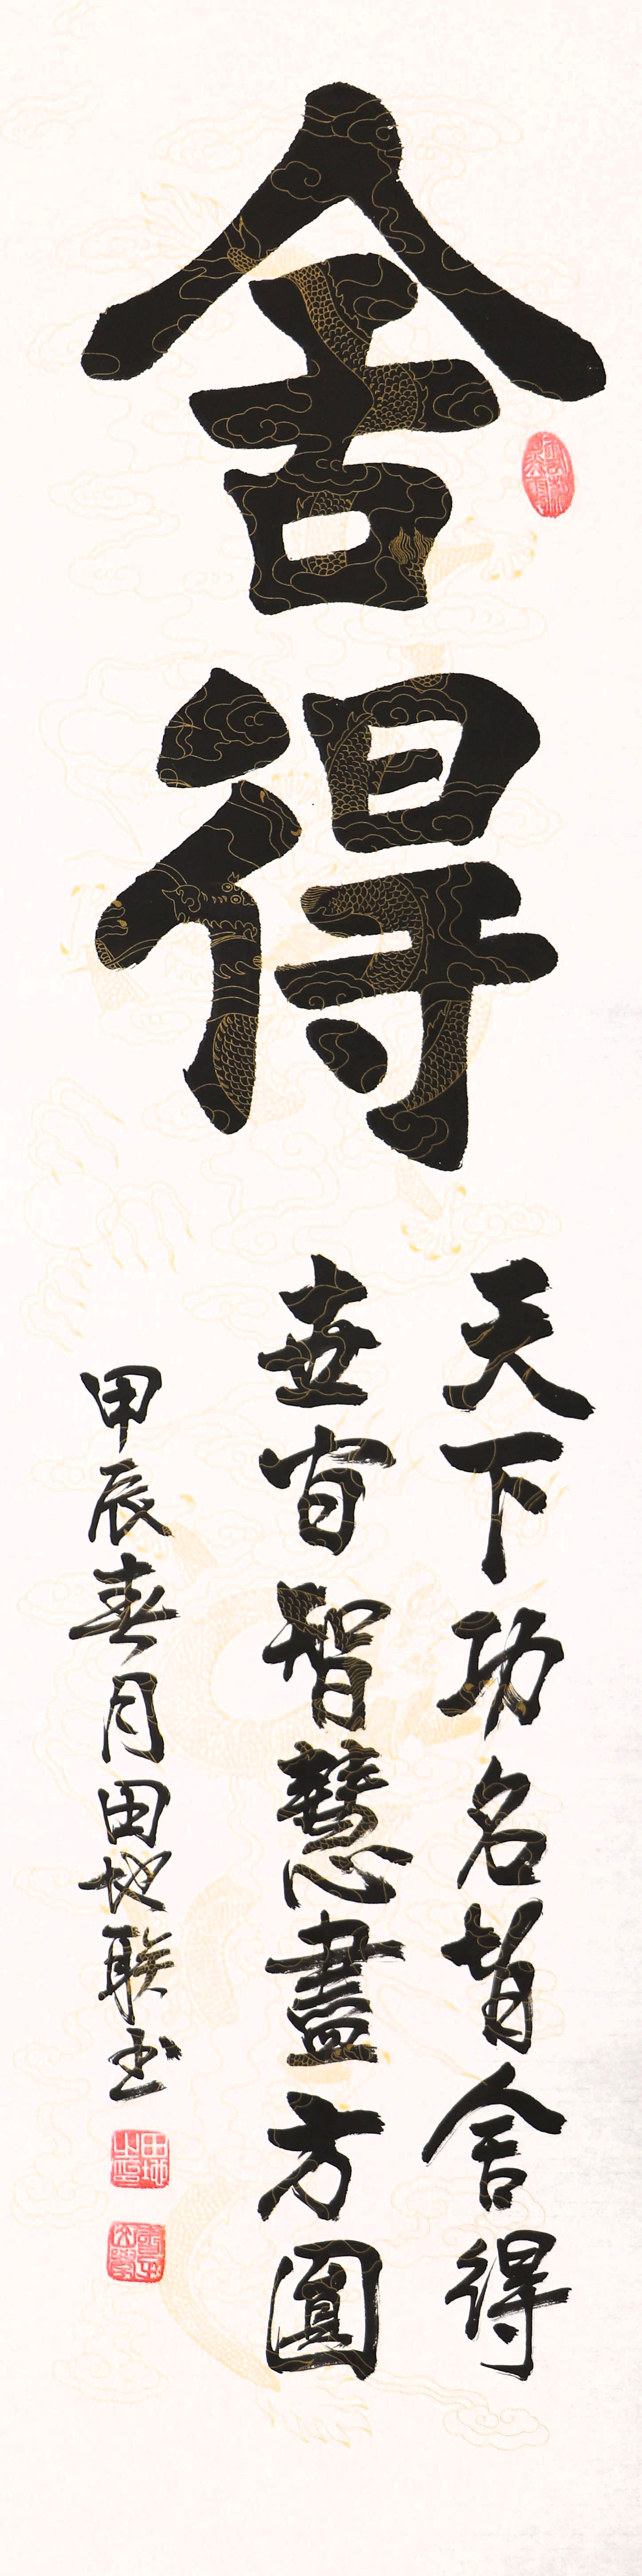 舍得
天下功名皆舍得
世间智慧盡方圓
甲辰春月田地联书
田地